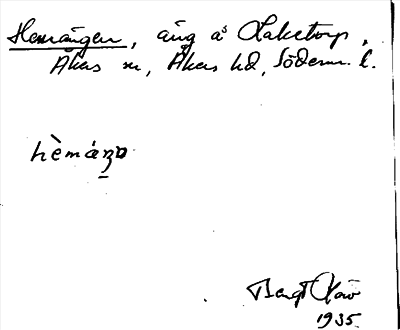 Hemängen, äng å Laketorp,
Åkers sn, Åkers hd, Söderm. l.
hèmáŋɒ
Bengt
1935